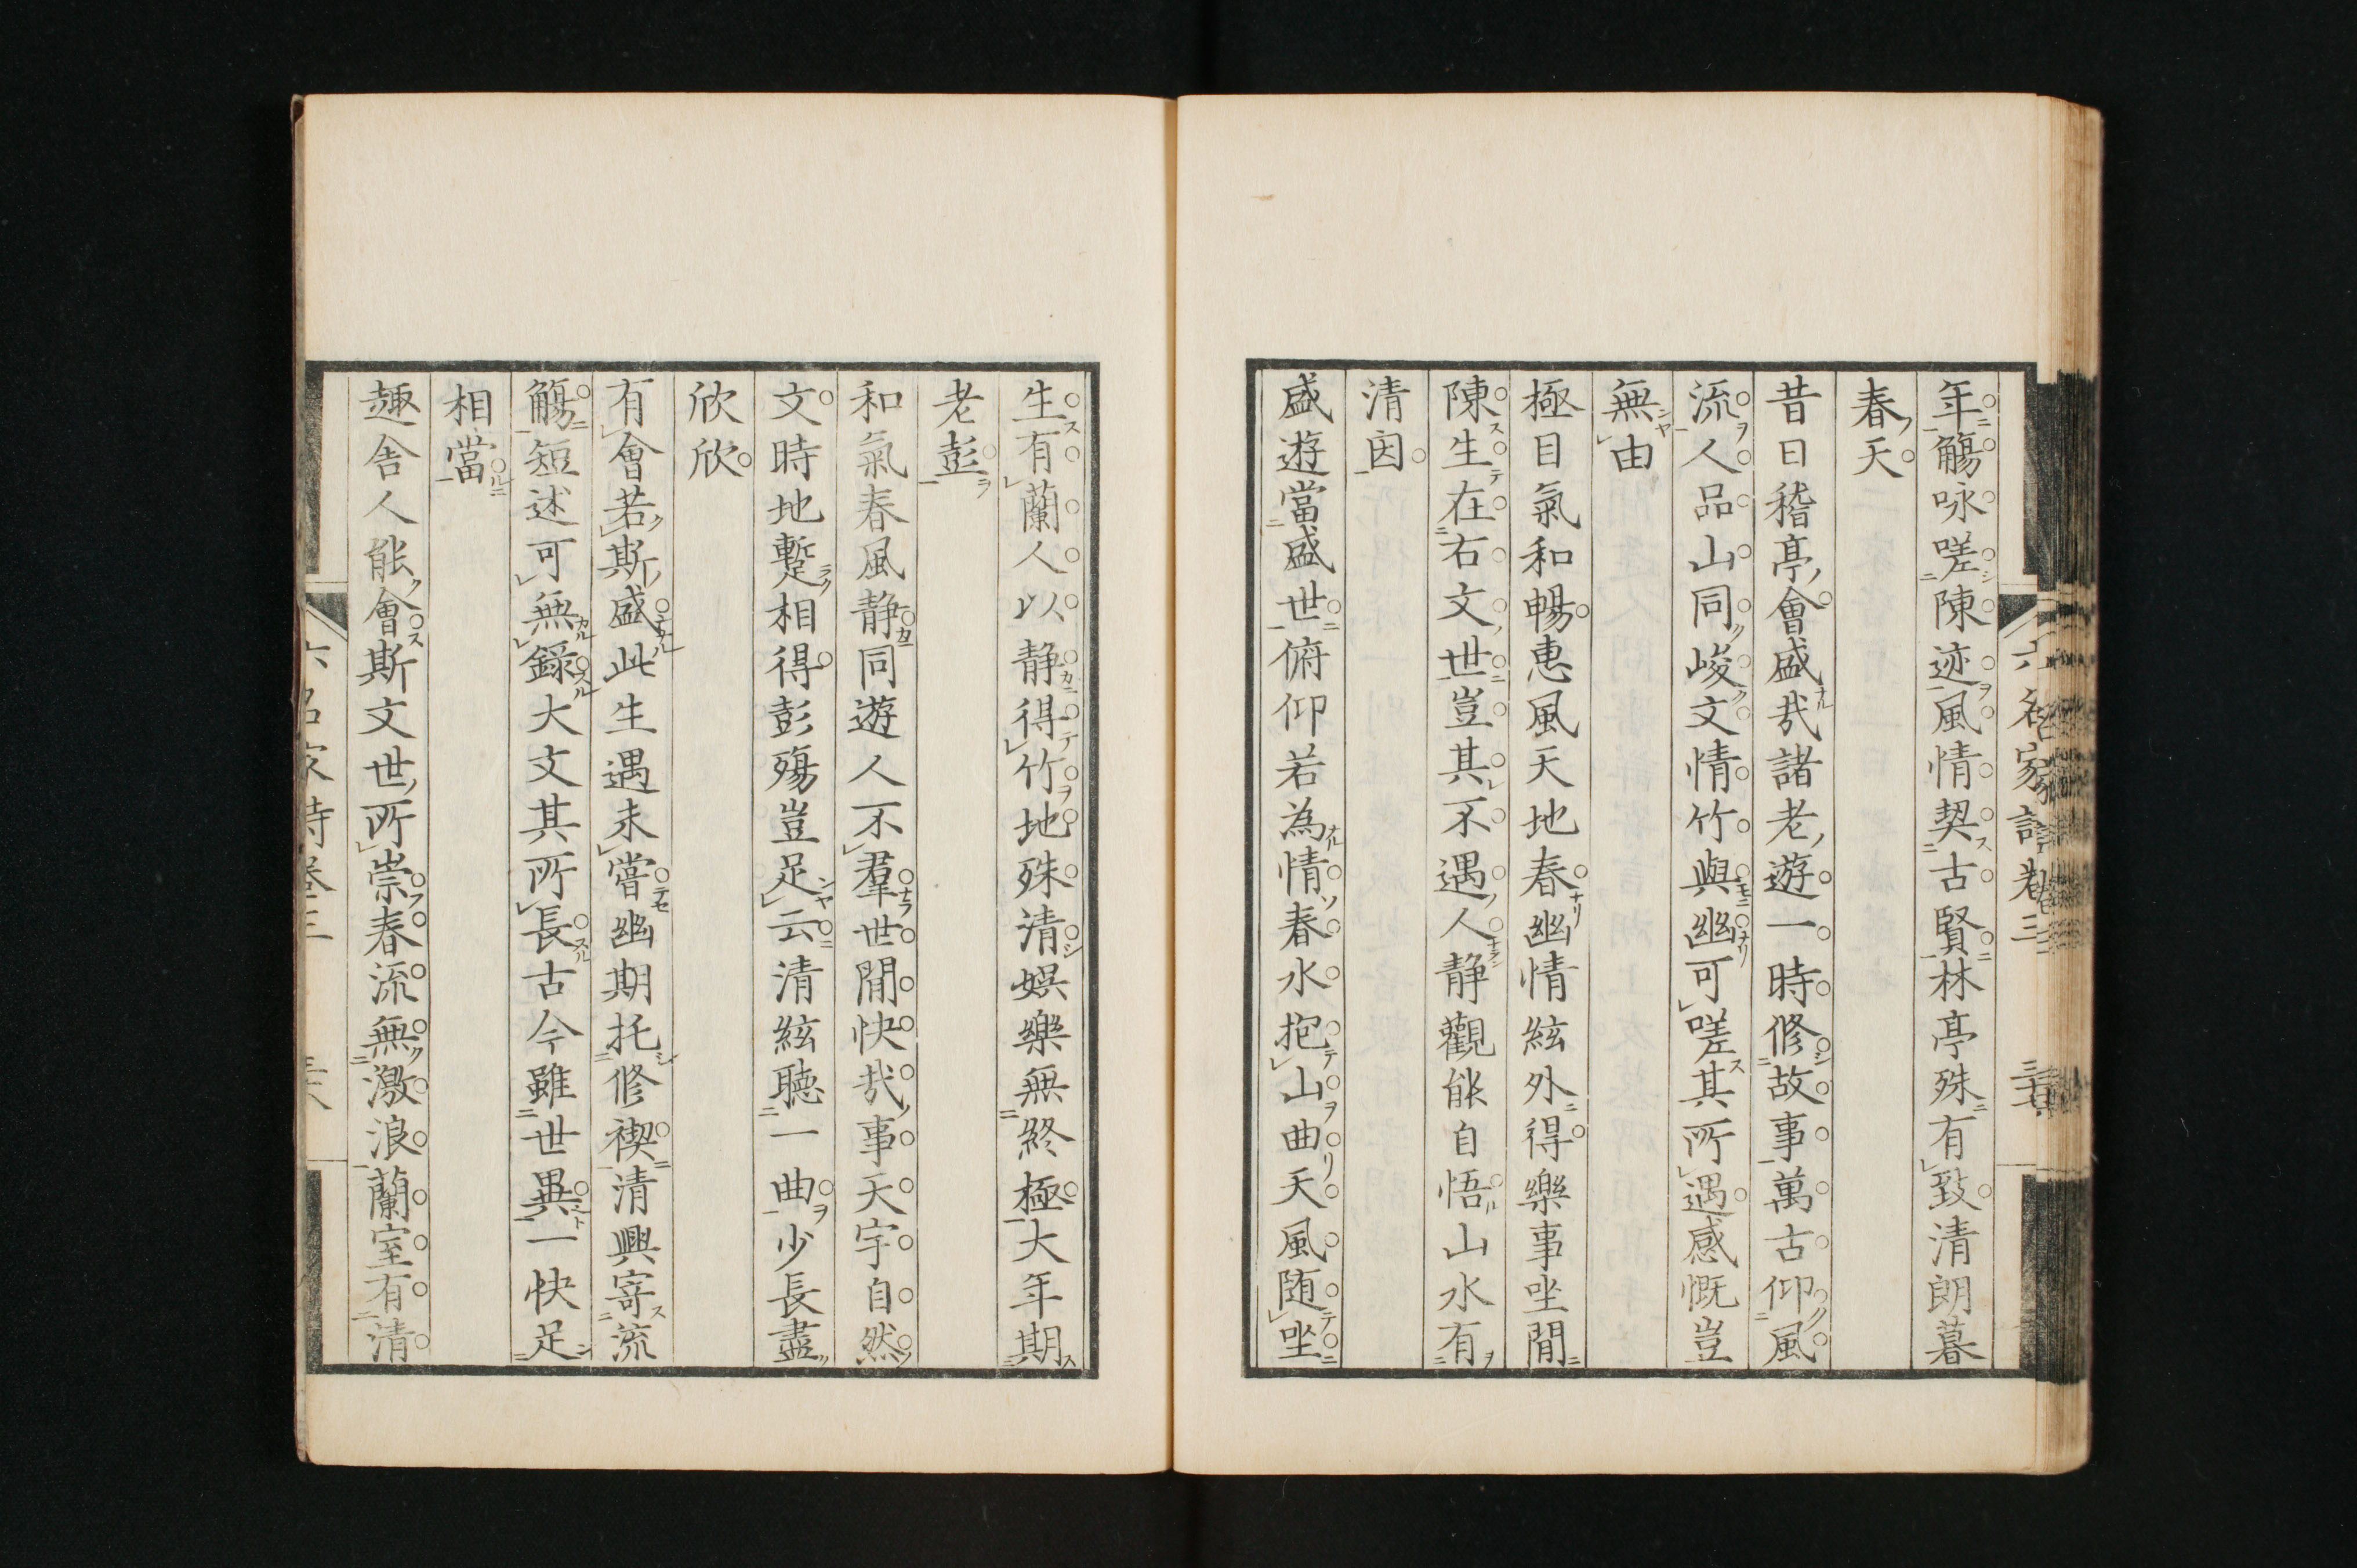 六名家詩卷三
年觴咏嗟陳迹風情契古賢林亭殊有致清朗暮
春天
昔日稽亭會盛哉諸老遊一時修故事萬古仰風
流人品山同峻文情竹與幽可嗟其所遇感慨豈
無由
極目氣和暢惠風天地春幽情絃外得樂事坐間
陳生在右文世豈其不遇人静觀能自悟山水有
清因
盛遊當盛世俯仰若為情春水抱山曲天風随坐
生有蘭人以静得竹地殊清娯樂無終極大年期
老彭
和氣春風静同遊人不羣世間快哉事天宇自然
文時地蹔相得彭殤豈足云清絃聴一曲少長盡
欣欣
有會若斯盛此生遇未嘗幽期托修禊清興寄流
觴短述可無録大文其所長古今雖世異一快足
相當
趣舎人能會斯文世所崇春流無激浪蘭室有清
六名家詩卷三